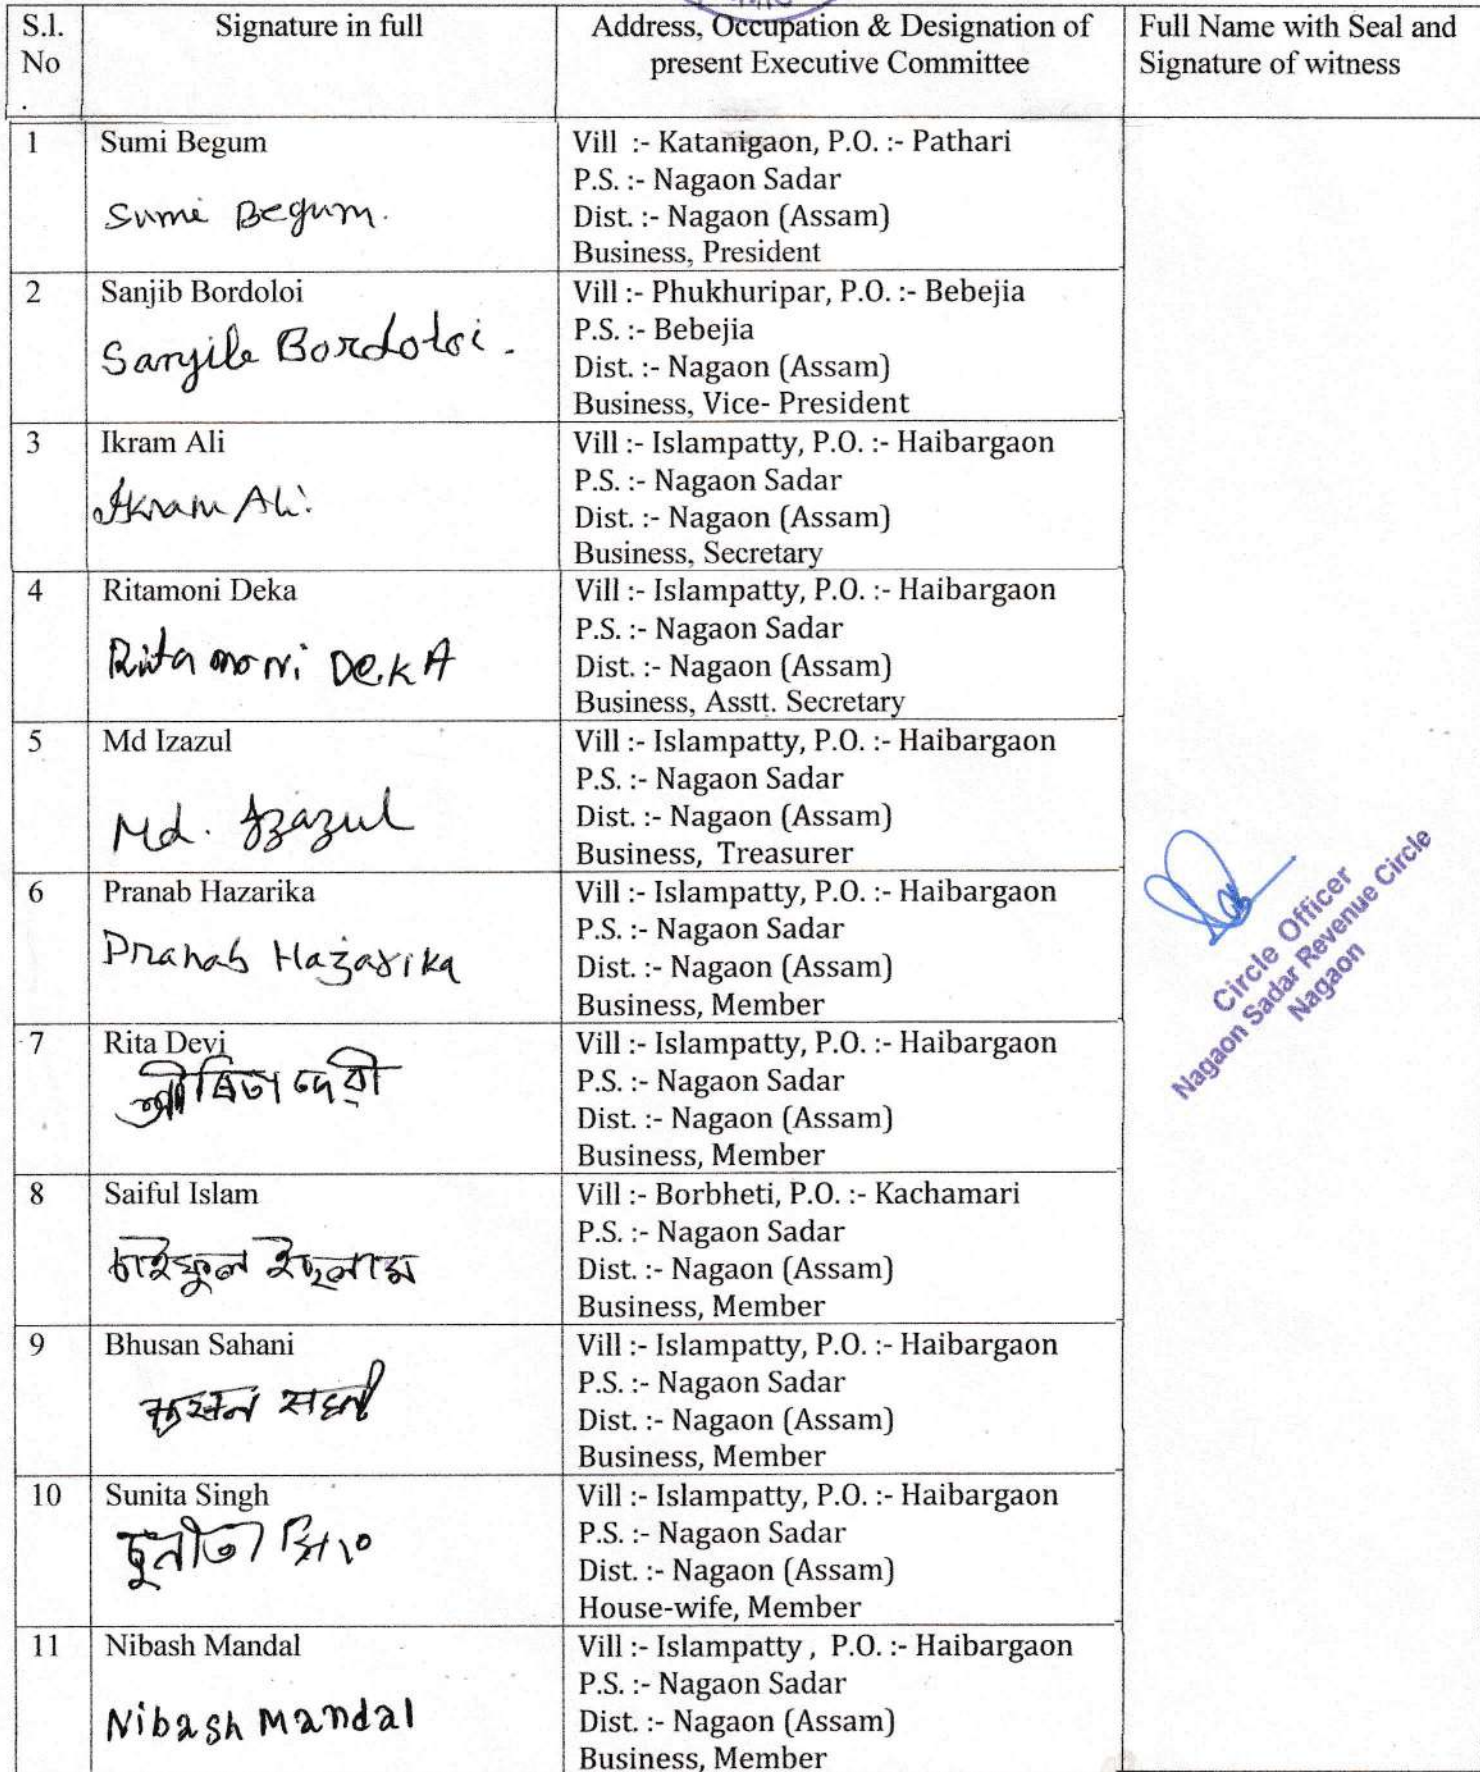 S.l.
No
.
Signature in full
Address, Occupation & Designation of
present Executive Committee
Full Name with Seal and
Signature of witness
1
Sumi Begum
Sumi Begum.
Vill :- Katanigaon, P.O. :- Pathari
P.S. :- Nagaon Sadar
Dist. :- Nagaon (Assam)
Business, President
2
Sanjib Bordoloi
Sanjib Bordoloi.
Vill :- Phukhuripar, P.O. :- Bebejia
P.S. :- Bebejia
Dist. :- Nagaon (Assam)
Business, Vice- President
3
Ikram Ali
Ikram Ali.
Vill :- Islampatty, P.O. :- Haibargaon
P.S. :- Nagaon Sadar
Dist. :- Nagaon (Assam)
Business, Secretary
4
Ritamoni Deka
Rita moni DekA
Vill :- Islampatty, P.O. :- Haibargaon
P.S. :- Nagaon Sadar
Dist. :- Nagaon (Assam)
Business, Asstt. Secretary
5
Md Izazul
Md. Izazul
Vill :- Islampatty, P.O. :- Haibargaon
P.S. :- Nagaon Sadar
Dist. :- Nagaon (Assam)
Business, Treasurer
6
Pranab Hazarika
Pranab Hazarika
Vill :- Islampatty, P.O. :- Haibargaon
P.S. :- Nagaon Sadar
Dist. :- Nagaon (Assam)
Business, Member
7
Rita Devi
শ্ৰী ৰিতা দেৱী
Vill :- Islampatty, P.O. :- Haibargaon
P.S. :- Nagaon Sadar
Dist. :- Nagaon (Assam)
Business, Member
8
Saiful Islam
চাইফুল ইছলাম
Vill :- Borbheti, P.O. :- Kachamari
P.S. :- Nagaon Sadar
Dist. :- Nagaon (Assam)
Business, Member
9
Bhusan Sahani
Vill :- Islampatty, P.O. :- Haibargaon
P.S. :- Nagaon Sadar
Dist. :- Nagaon (Assam)
Business, Member
10
Sunita Singh
চুনীতা সিং
Vill :- Islampatty, P.O. :- Haibargaon
P.S. :- Nagaon Sadar
Dist. :- Nagaon (Assam)
House-wife, Member
11
Nibash Mandal
Nibash Mandal
Vill :- Islampatty , P.O. :- Haibargaon
P.S. :- Nagaon Sadar
Dist. :- Nagaon (Assam)
Business, Member
Circle Officer
Nagaon Sadar Revenue Circle
Nagaon